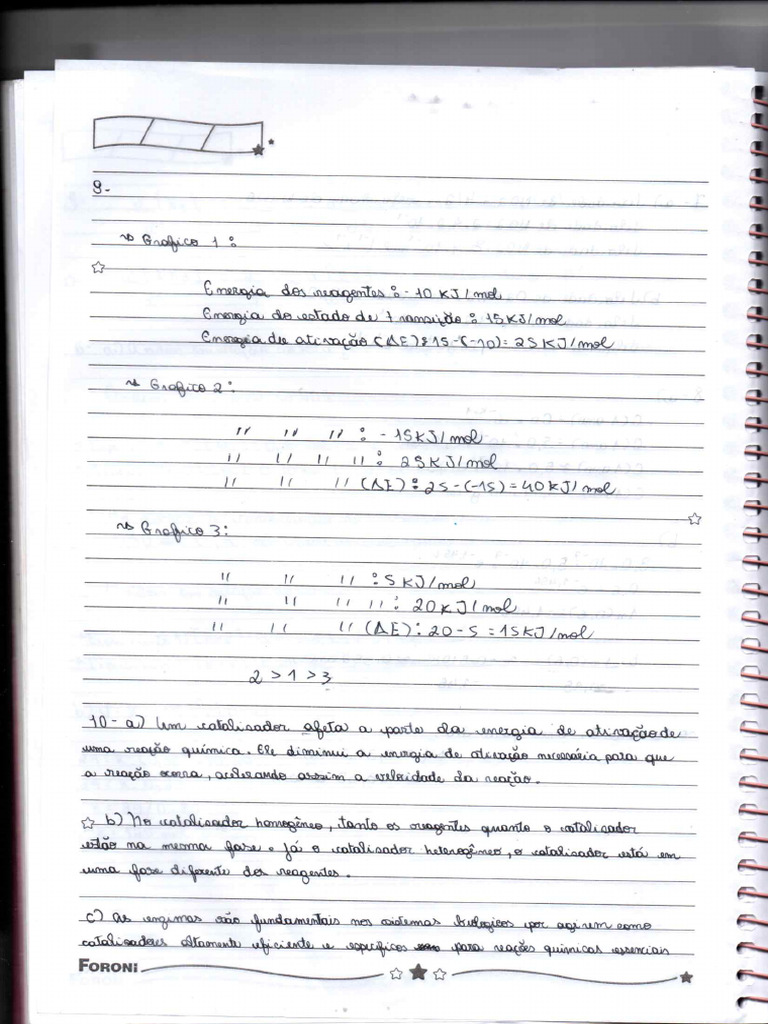 9-
↳ Grafico 1:
Energia dos reagentes: -10 KJ/mol
Energia do estado de transição: 15 KJ/mol
Energia de ativação (ΔE): 15-(-10)= 25 KJ/mol
↳ Grafico 2:
" " " : -15 KJ/mol
" " " " : 25 KJ/mol
" " " (ΔE): 25-(-15)=40 KJ/mol
↳ Grafico 3:
" " " : 5 KJ/mol
" " " " : 20 KJ/mol
" " " (ΔE): 20-5=15 KJ/mol
2 > 1 > 3
10- a) Um catalisador afeta a parte da energia de ativação de
uma reação química. Ele diminui a energia de ativação necessária para que
a reação ocorra, acelerando assim a velocidade da reação.
b) No catalisador homogêneo, tanto os reagentes quanto o catalisador
estão na mesma fase e já o catalisador heterogêneo, o catalisador está em
uma fase diferente dos reagentes.
c) As enzimas são fundamentais nos sistemas biologicos por agirem como
catalisadores altamente eficiente e especificos para reações quimicas essenciais
FORONI